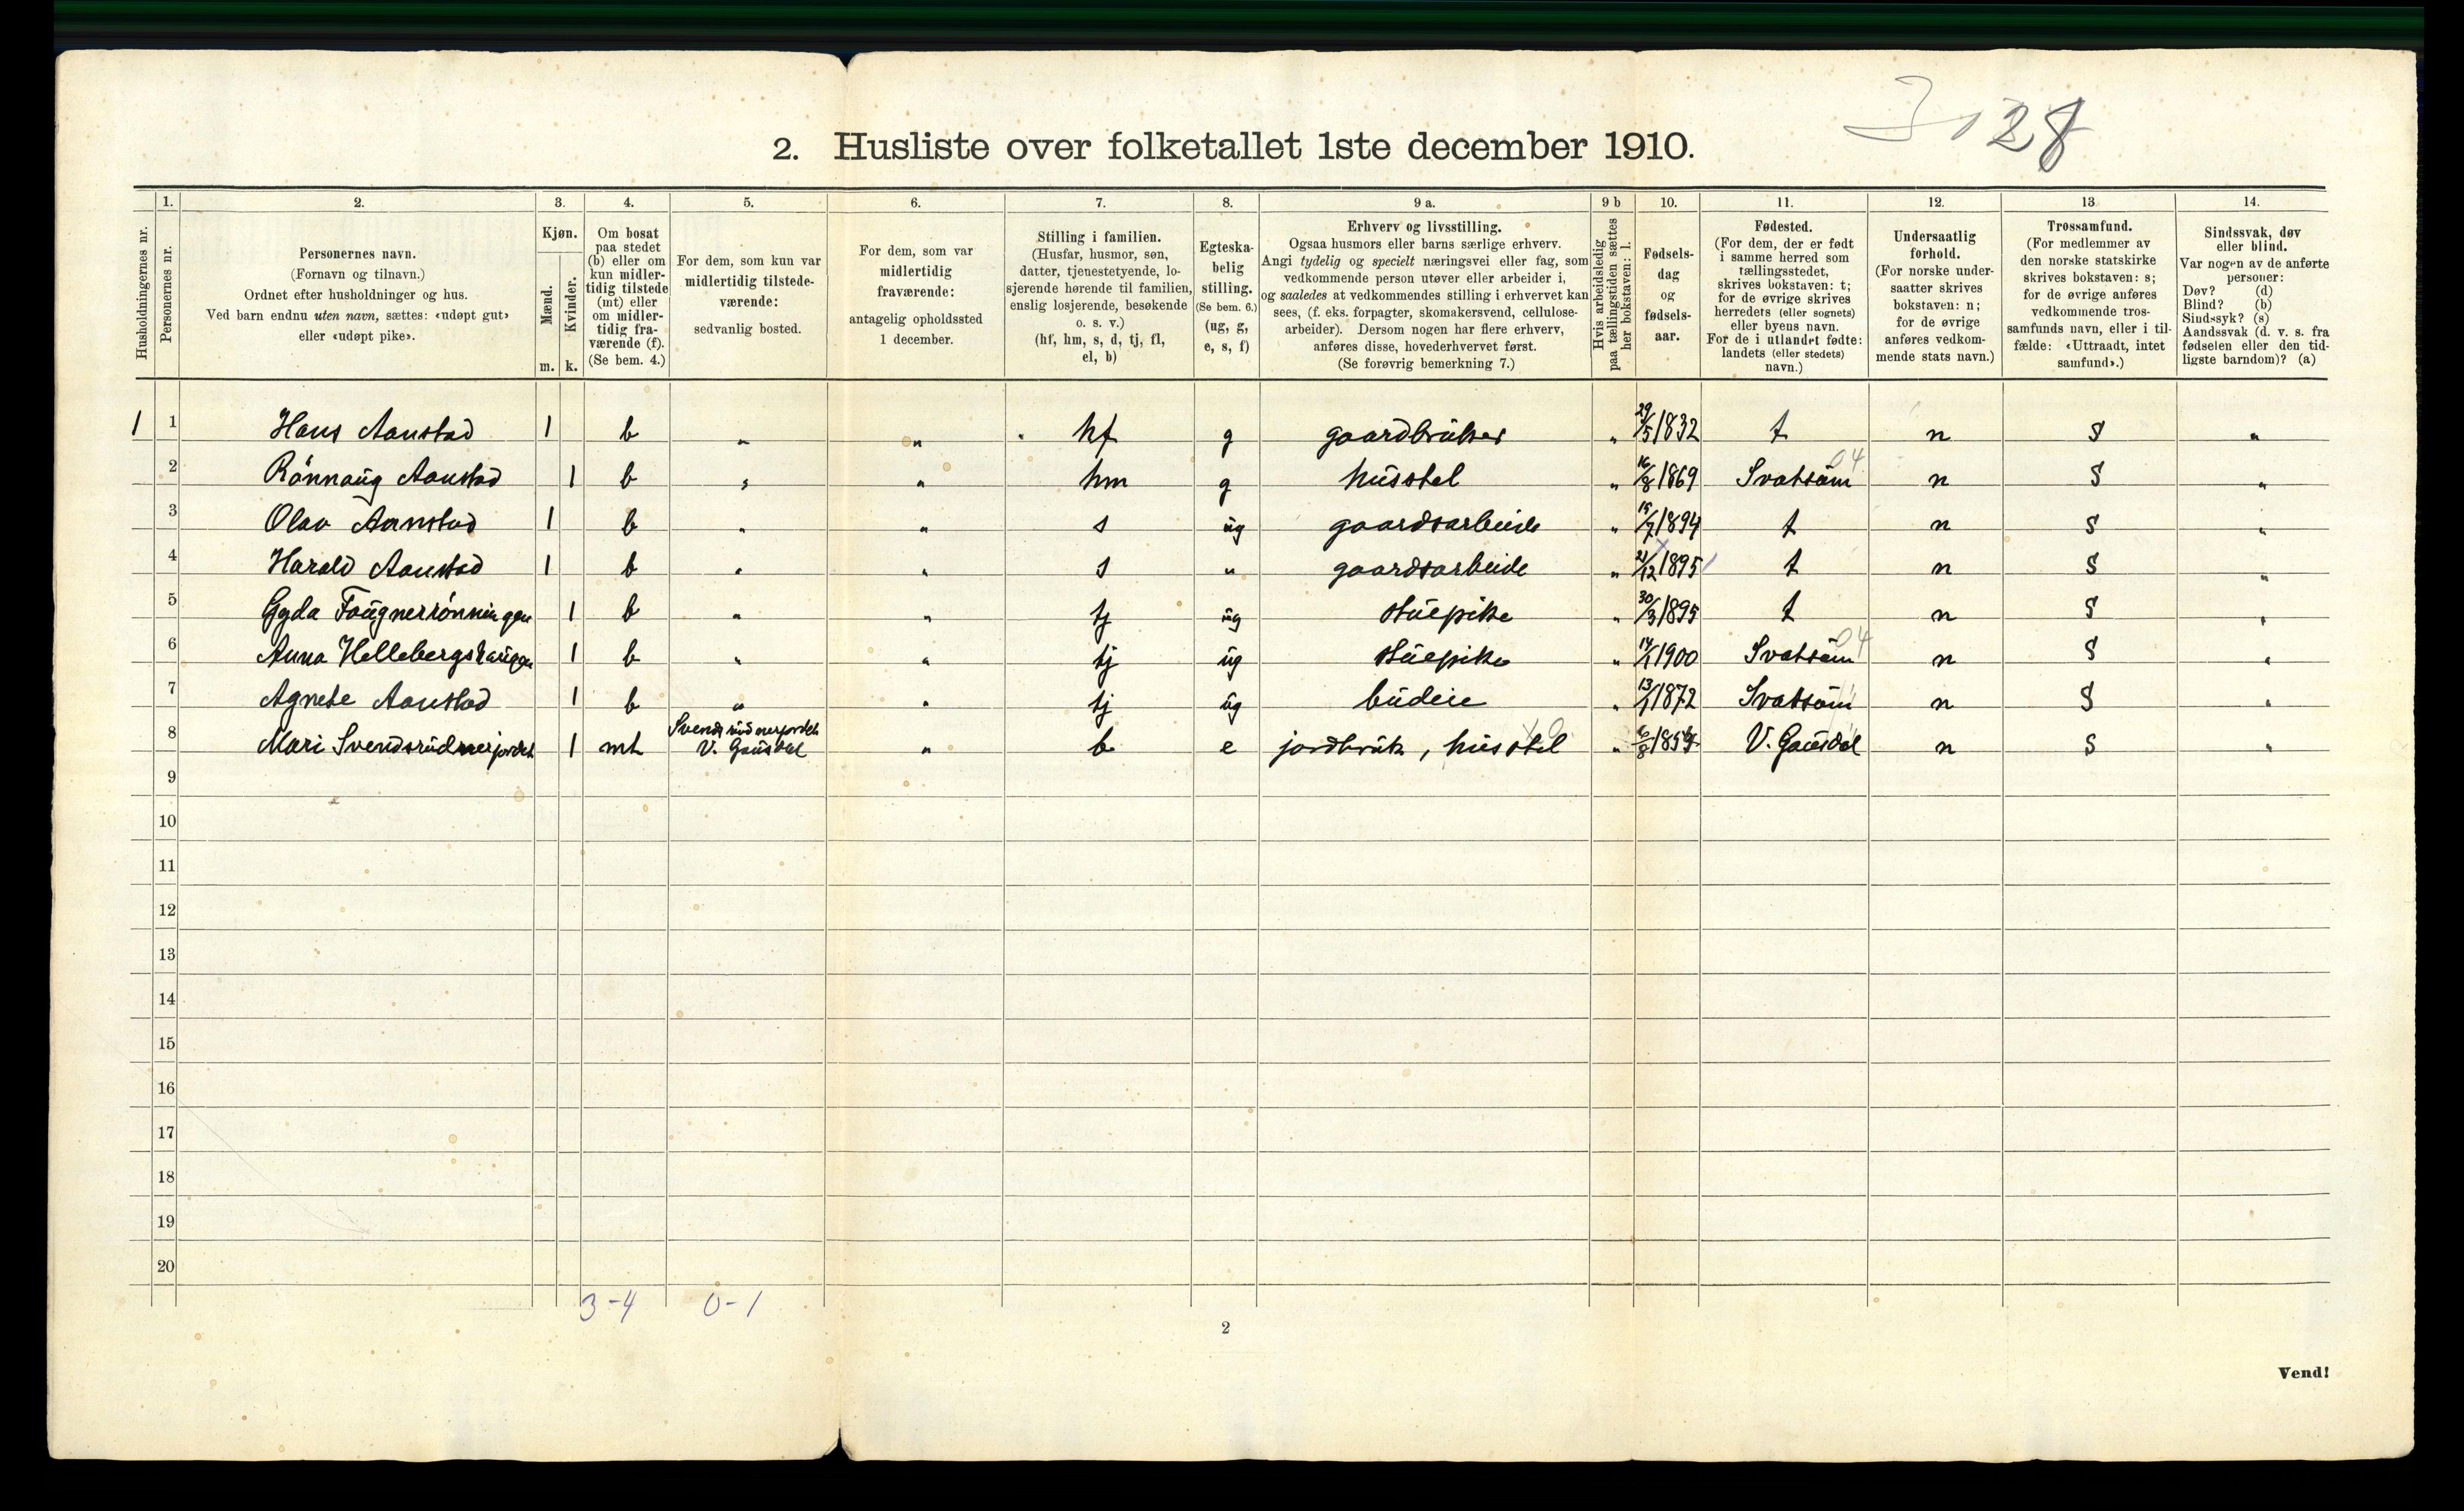 28
2. Husliste over folketallet 1ste december 1910.
Husholdningernes nr.
1.
Personernes nr.
2.
Personernes navn.
(Fornavn og tilnavn.)
Ordnet efter husholdninger og hus.
Ved barn endnu uten navn, sættes: «udøpt gut»
eller «udøpt pike».
3.
Kjøn.
Mænd.
m.
Kvinder.
k.
4.
Om bosat
paa stedet
(b) eller om
kun midler-
tidig tilstede
(mt) eller
om midler-
tidig fra-
værende (f).
(Se bem. 4.)
5.
For dem, som kun var
midlertidig tilstede-
værende:
sedvanlig bosted.
6.
For dem, som var
midlertidig
fraværende:
antagelig opholdssted
1 december.
7.
Stilling i familien.
(Husfar, husmor, søn,
datter, tjenestetyende, lo-
sjerende hørende til familien,
enslig losjerende, besøkende
o. s. v.)
(hf, hm, s, d, tj, fl,
el, b)
8.
Egteska-
belig
stilling.
(Se bem. 6.)
(ug, g,
e, s, f)
9 a.
Erhverv og livsstilling.
Ogsaa husmors eller barns særlige erhverv.
Angi tydelig og specielt næringsvei eller fag, som
vedkommende person utøver eller arbeider i,
og saaledes at vedkommendes stilling i erhvervet kan
sees, (f. eks. forpagter, skomakersvend, cellulose-
arbeider). Dersom nogen har flere erhverv,
anføres disse, hovederhvervet først.
(Se forøvrig bemerkning 7.)
9 b
Hvis arbeidsledig
paa tællingstiden sættes
her bokstaven: l.
10.
Fødsels-
dag
og
fødsels-
aar.
11.
Fødested.
(For dem, der er født
i samme herred som
tællingsstedet,
skrives bokstaven: t;
for de øvrige skrives
herredets (eller sognets)
eller byens navn.
For de i utlandet fødte:
landets (eller stedets)
navn.)
12.
Undersaatlig
forhold.
(For norske under-
saatter skrives
bokstaven: n;
for de øvrige
anføres vedkom-
mende stats navn.)
13
Trossamfund.
(For medlemmer av
den norske statskirke
skrives bokstaven: s;
for de øvrige anføres
vedkommende tros-
samfunds navn, eller i til-
fælde: «Uttraadt, intet
samfund».)
14.
Sindssvak, døv
eller blind.
Var nogen av de anførte
personer:
Døv? (d)
Blind? (b)
Sindssyk? (s)
Aandssvak (d. v. s. fra
fødselen eller den tid-
ligste barndom)? (a)
1 1 Hans Aanstad 1 b " " hf g gaardbruker " 29/5 1832 t n S "
2 Rönnaug Aanstad 1 b " " hm g husstel " 16/8 1869 Svatsum 04 n S "
3 Olav Aanstad 1 b " " s ug gaardsarbeide " 15/7 1894 t n S "
4 Harald Aanstad 1 b " " s " gaardsarbeide " 21/12 1895 t n S "
5 Gyda Fougnerrönningen 1 b " " tj ug stuepike " 30/3 1895 t n S "
6 Anna Hellebergshaugen 1 b " " tj ug stuepike " 14/1 1900 Svatsum 04 n S "
7 Agnete Aanstad 1 b " " tj ug budeie " 13/1 1872 Svatsum n S "
8 Mari Svendsrudnerjordet 1 mt Svendsrudnerjordet V. Gausdal " b e jordbruk, husstel " 6/8 V. Gausdal n S "
9
10
11
12
13
14
15
16
17
18
19
20
3-4 0-1
2
Vend!